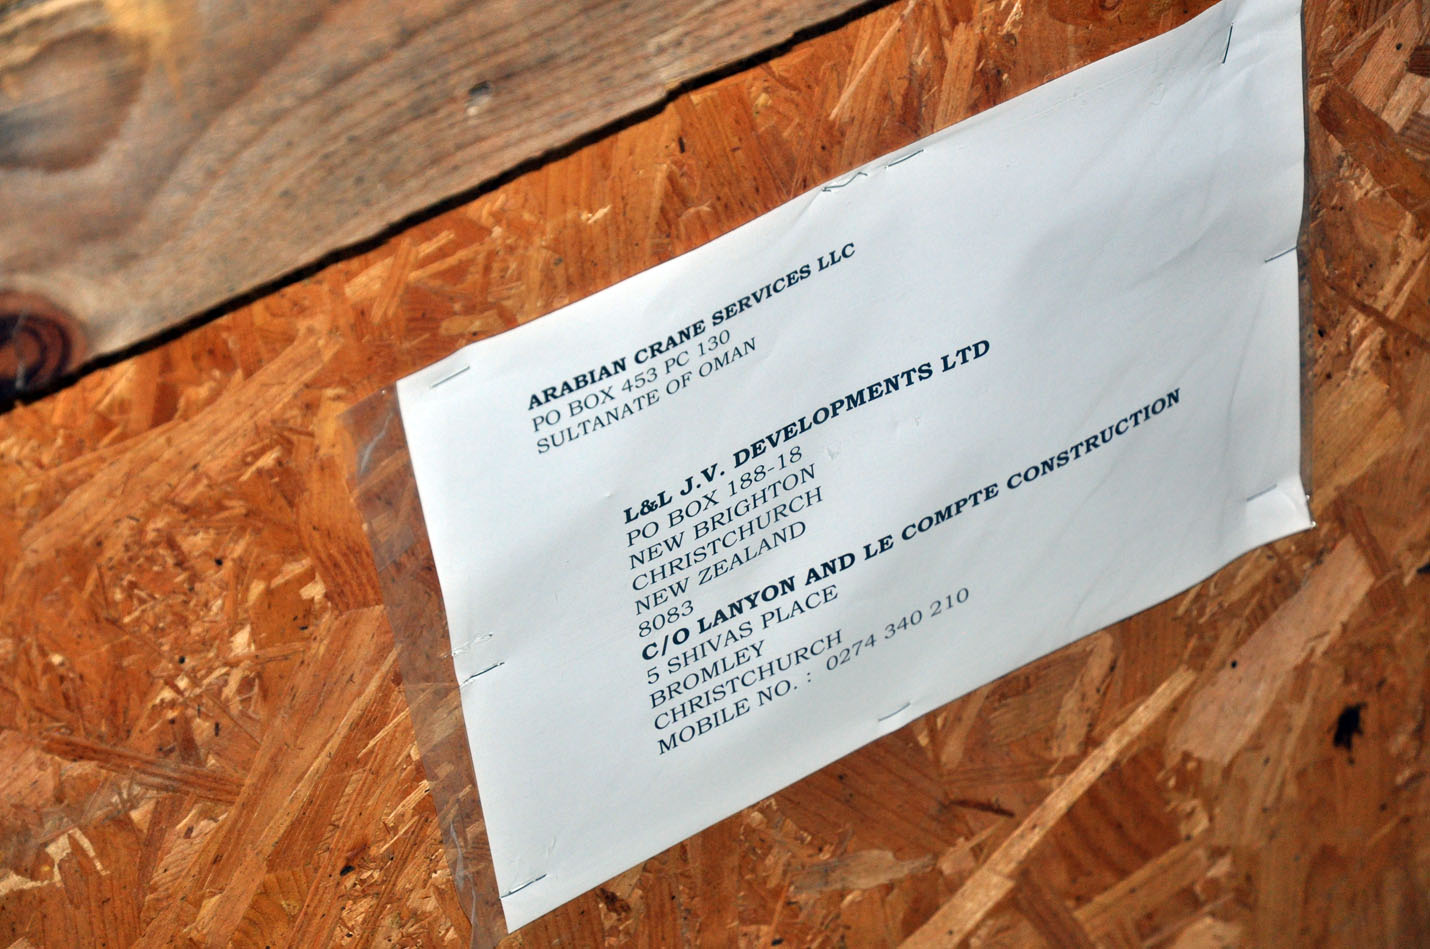 ARABIAN CRANE SERVICES LLC
PO BOX 453 PC 130
SULTANATE OF OMAN
L&L J.V. DEVELOPMENTS LTD
PO BOX 188-18
NEW BRIGHTON
CHRISTCHURCH
NEW ZEALAND
8083
C/O LANYON AND LE COMPTE CONSTRUCTION
5 SHIVAS PLACE
BROMLEY
CHRISTCHURCH
MOBILE NO. : 0274 340 210